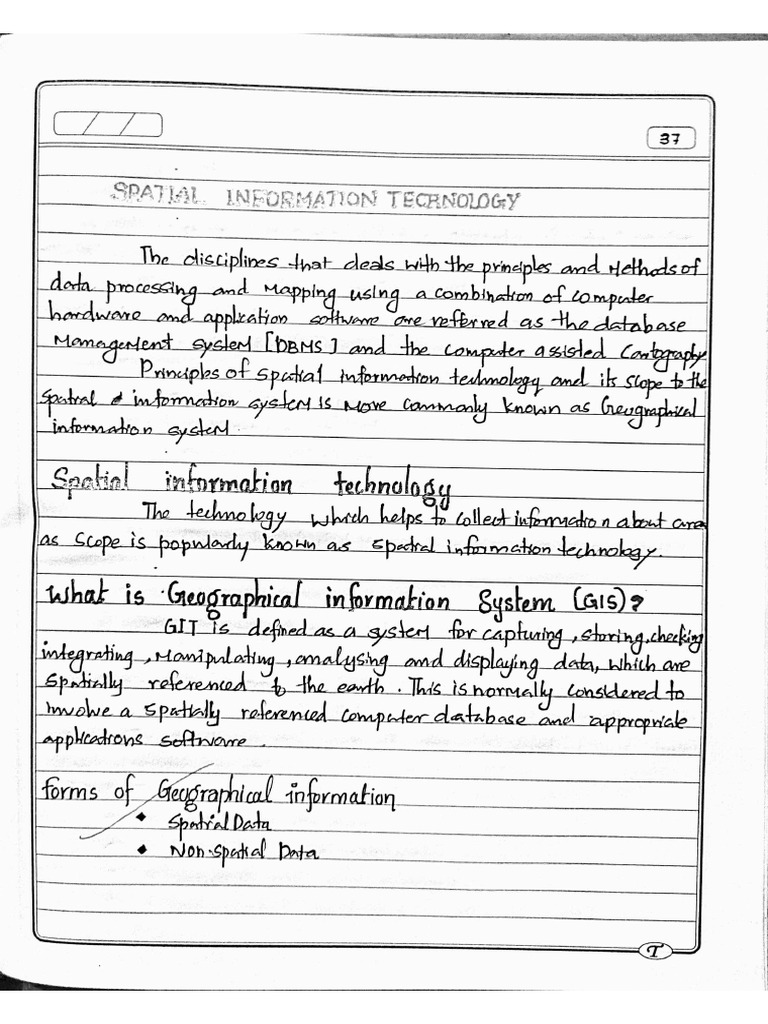 37
SPATIAL INFORMATION TECHNOLOGY
The disciplines that deals with the principles and Methods of
data processing and Mapping using a combination of computer
hardware and application software are refferred as the database
Management system [DBMS] and the computer assisted Cartography
Principles of spatial information technology and its scope to the
spatial information system is More commonly known as Geographical
information system.
Spatial information technology
The technology which helps to collect information about area
as scope is popularly known as spatial information technology.
What is Geographical information System (GIS)?
GIT is defined as a system for capturing, storing, checking
integrating, Manipulating, analysing and displaying data, which are
spatially referenced to the earth. This is normally considered to
involve a spatially referenced computer database and appropriate
applications software.
forms of Geographical information
• Spatial Data
• Non-spatial Data
T